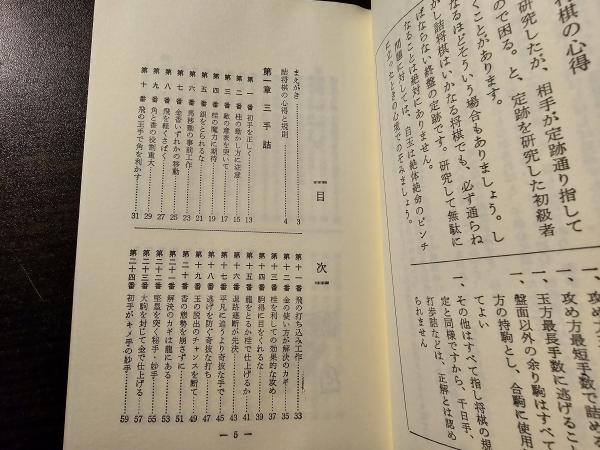 将棋の心得
研究したが、相手が定跡通り指して
ので困る。と、定跡を研究した初級者
くことがあります。
なるほどそういう場合もありましょう。し
かし詰将棋はいかなる将棋でも、必ず通らね
ばならない終盤の定跡です。研究して無駄に
なることは絶対にありません。
問題に対しては、自玉は絶体絶命のピンチ
に立ったときの心境でのぞみましょう。
一、攻め方最短手数で詰める
一、玉方最長手数に逃げること
一、盤面以外の余り駒はすべて
方の持駒とし、合駒に使用
てよい
一、その他はすべて指し将棋の規
定と同様ですから、千日手、
打歩詰などは、正解とは認め
られません
目 次
まえがき 3
詰将棋の心得と規則 4
第一章 三手詰
第一番 初手を正しく 13
第二番 桂の動かし方に注意 15
第三番 敵の意表を突いて 17
第四番 桂の魔力に期待 19
第五番 銀をとられるな 21
第六番 馬移動の事前工作 23
第七番 金香いずれかの移動 25
第八番 飛を軽くさばく 27
第九番 角と香の役割重大 29
第十番 飛の王手で角を利かす 31
第十一番 飛の打ち込み工作 33
第十二番 金の使い方が解決のカギ 35
第十三番 桂を利しての効果的な攻め 37
第十四番 駒得に目をくれるな 39
第十五番 龍をとるか桂で仕上げるか 41
第十六番 退路遮断が先決 43
第十七番 平凡に追うより奇抜な手で 45
第十八番 逃げを防ぐ奇抜な打ち 47
第十九番 玉の脱出のチャンスを断て 49
第二十番 香の態勢を崩さずに 51
第二十一番 解決のカギは龍にある 53
第二十二番 堅塁を突く秘手・妙手 55
第二十三番 大駒を封じて金で仕上げる 57
第二十四番 初手がキメ手の妙手 59
— 5 —